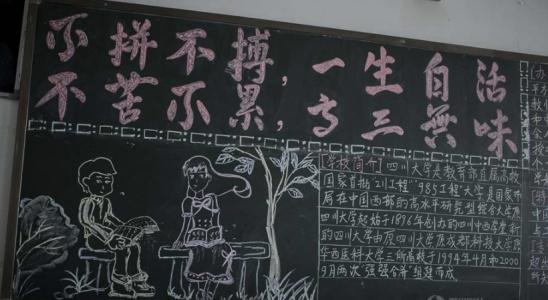 不拼不搏，一生白活
不苦不累，高三無味
[学校简介] 四川大学是教育部直属高校
国家首批"211工程""985工程"大学是国家布
局在中国西部的高水平研究型综合大学
四川大学起始于1896年创办的四川中西学堂新
的四川大学由原四川大学原成都科技大学原
华西医科大学三所高校于1994年4月和2000
年9月两次"强强合并"组建而成